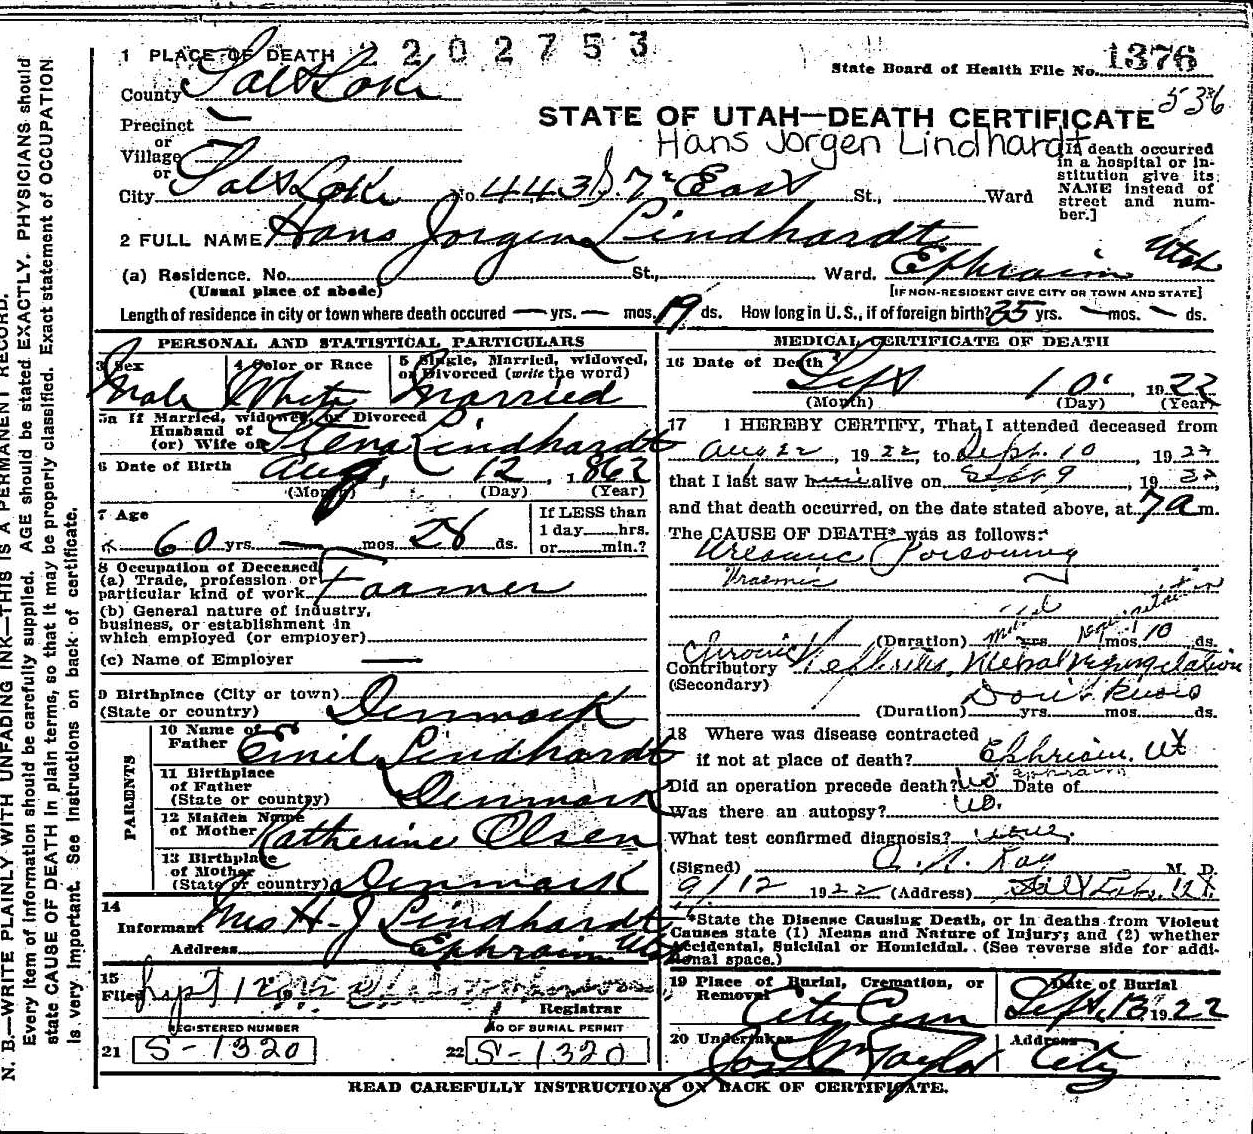 1 PLACE OF DEATH 2202753
State Board of Health File No. 1376
536
County Salt Lake
STATE OF UTAH—DEATH CERTIFICATE
Hans Jorgen Lindhardt
Precinct
or
Village
or
City Salt Lake No. 443 S. 7th East St., Ward
[If death occurred in a hospital or institution give its NAME instead of street and number.]
2 FULL NAME Hans Jorgen Lindhardt
(a) Residence. No. St., Ward. Ephraim Utah
(Usual place of abode)
[IF NON-RESIDENT GIVE CITY OR TOWN AND STATE]
Length of residence in city or town where death occured — yrs. — mos. 19 ds. How long in U.S., if of foreign birth? 35 yrs. — mos. — ds.
PERSONAL AND STATISTICAL PARTICULARS
3 Sex Male
4 Color or Race White
5 Single, Married, widowed, or Divorced (write the word) Married
5a If Married, widowed, or Divorced
Husband of
(or) Wife of Stena Lindhardt
6 Date of Birth Aug. 12, 1862
(Month) (Day) (Year)
7 Age
60 yrs. — mos. 28 ds.
If LESS than
1 day hrs.
or min.?
8 Occupation of Deceased
(a) Trade, profession or
particular kind of work Farmer
(b) General nature of industry,
business, or establishment in
which employed (or employer)
(c) Name of Employer —
9 Birthplace (City or town)
(State or country) Denmark
PARENTS
10 Name of
Father Emil Lindhardt
11 Birthplace
of Father
(State or country) Denmark
12 Maiden Name
of Mother Katherine Olsen
13 Birthplace
of Mother
(State or country) Denmark
14
Informant Mrs H. J. Lindhardt
Address Ephraim Utah
15
Filed Sept 12
Registrar
REGISTERED NUMBER
NO OF BURIAL PERMIT
21 S-1320
22 S-1320
MEDICAL CERTIFICATE OF DEATH
16 Date of Death Sept 10 1922
(Month) (Day) (Year)
17 I HEREBY CERTIFY, That I attended deceased from
Aug 22, 1922, to Sept. 10, 1922
that I last saw him alive on Sept 9, 1922,
and that death occurred, on the date stated above, at 7 a m.
The CAUSE OF DEATH* was as follows:
Uraemic Poisoning
Uraemic
mitral regurgitation
(Duration) yrs. mos. 10 ds.
Contributory Chronic Nephritis, Mitral regurgitation
(Secondary)
Don't Know
(Duration) yrs. mos. ds.
18 Where was disease contracted
if not at place of death? Ephriam, Ut
Ephraim
Did an operation precede death? No Date of
Was there an autopsy? No.
What test confirmed diagnosis?
(Signed) Kay M. D.
9/12 1922 (Address) Salt Lake, Ut.
*State the Disease Causing Death, or in deaths from Violent
Causes state (1) Means and Nature of Injury; and (2) whether
Accidental, Suicidal or Homicidal. (See reverse side for addi-
tional space.)
19 Place of Burial, Cremation, or
Removal City Cem
Date of Burial
Sept. 13 1922
20 Undertaker Jos. Wm Taylor
Address City
READ CAREFULLY INSTRUCTIONS ON BACK OF CERTIFICATE.
N. B.—WRITE PLAINLY WITH UNFADING INK—THIS IS A PERMANENT RECORD.
Every item of information should be carefully supplied. AGE should be stated EXACTLY. PHYSICIANS should
state CAUSE OF DEATH in plain terms, so that it may be properly classified. Exact statement of OCCUPATION
is very important. See instructions on back of certificate.